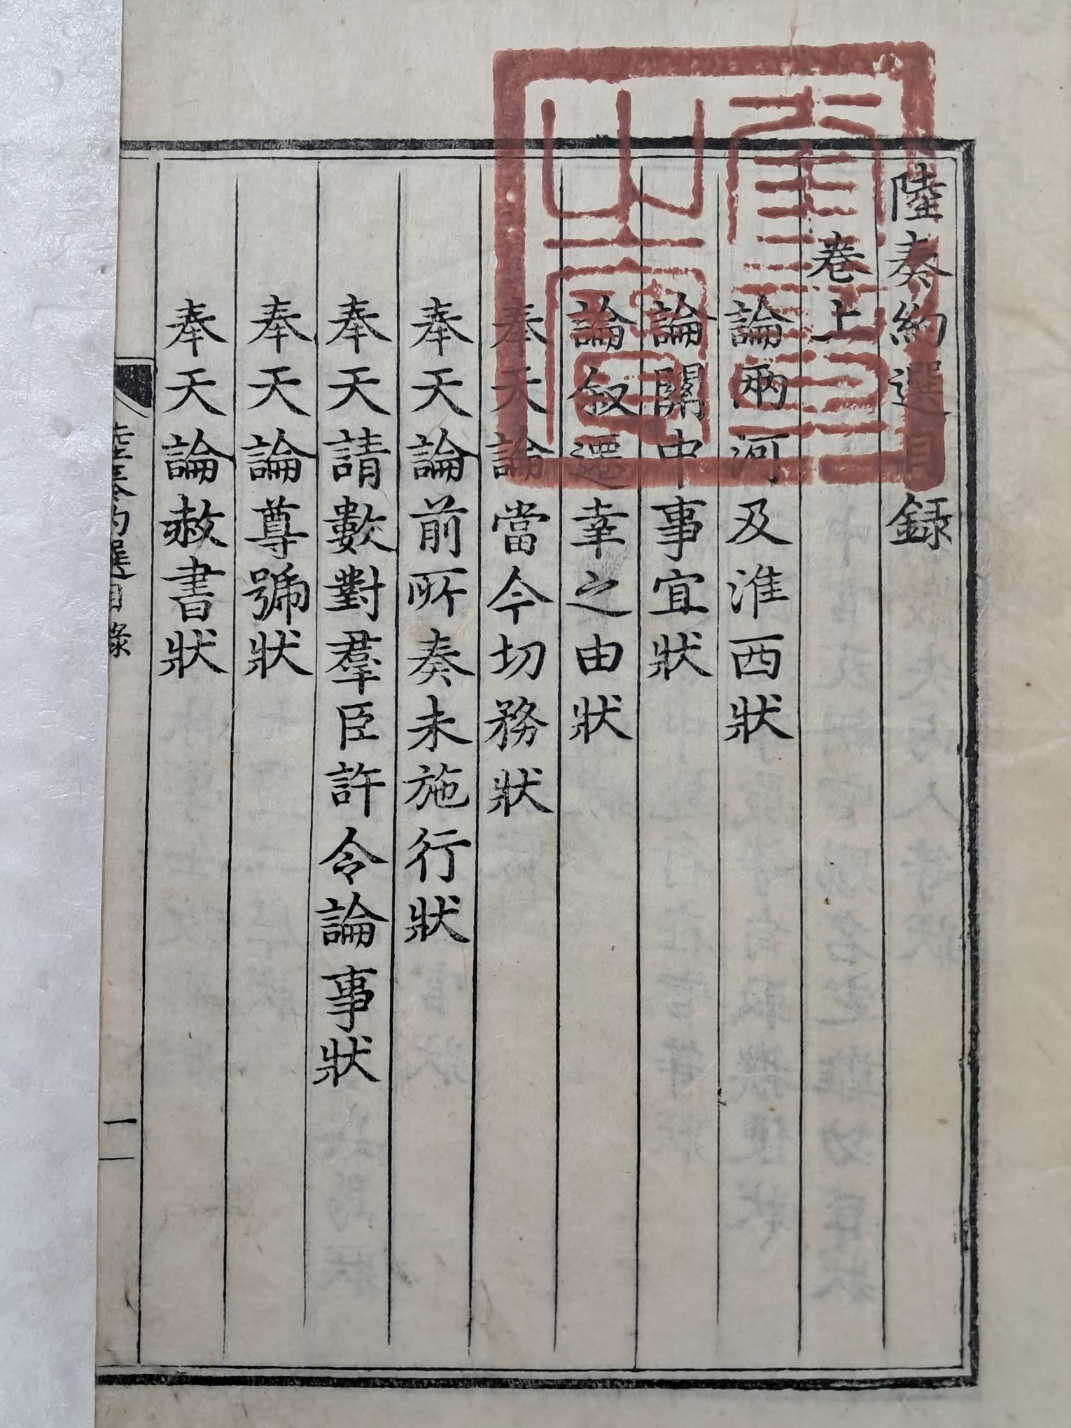 陸奏約選目錄
卷上
論兩河及淮西狀
論關中事宜狀
論叙遷幸之由狀
奉天論當今切務狀
奉天論前所奏未施行狀
奉天請數對羣臣許令論事狀
奉天論尊號狀
奉天論赦書狀
陸奏約選目錄
一